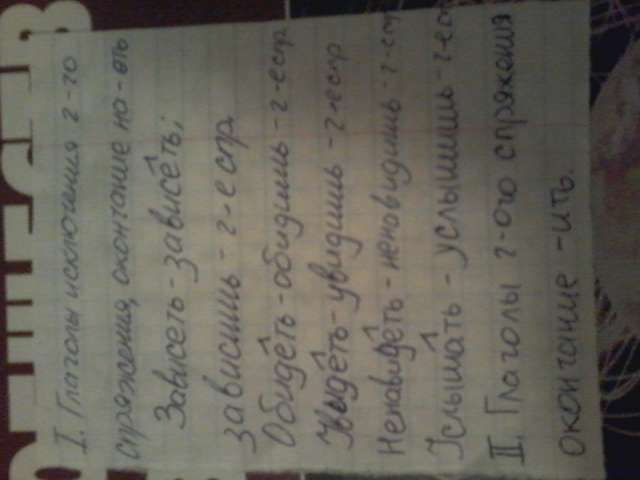 I. Глаголы исключения 2-го
спряжения, окончание на -еть
Зависеть - зависеть;
зависишь - 2-е спр
Обидеть - обидишь - 2-е спр
Видеть - увидишь - 2-е спр
Ненавидеть - ненавидишь - 2-е спр
Услышать - услышишь - 2-е сп
II. Глаголы 2-ого спряжения
окончание -ить.